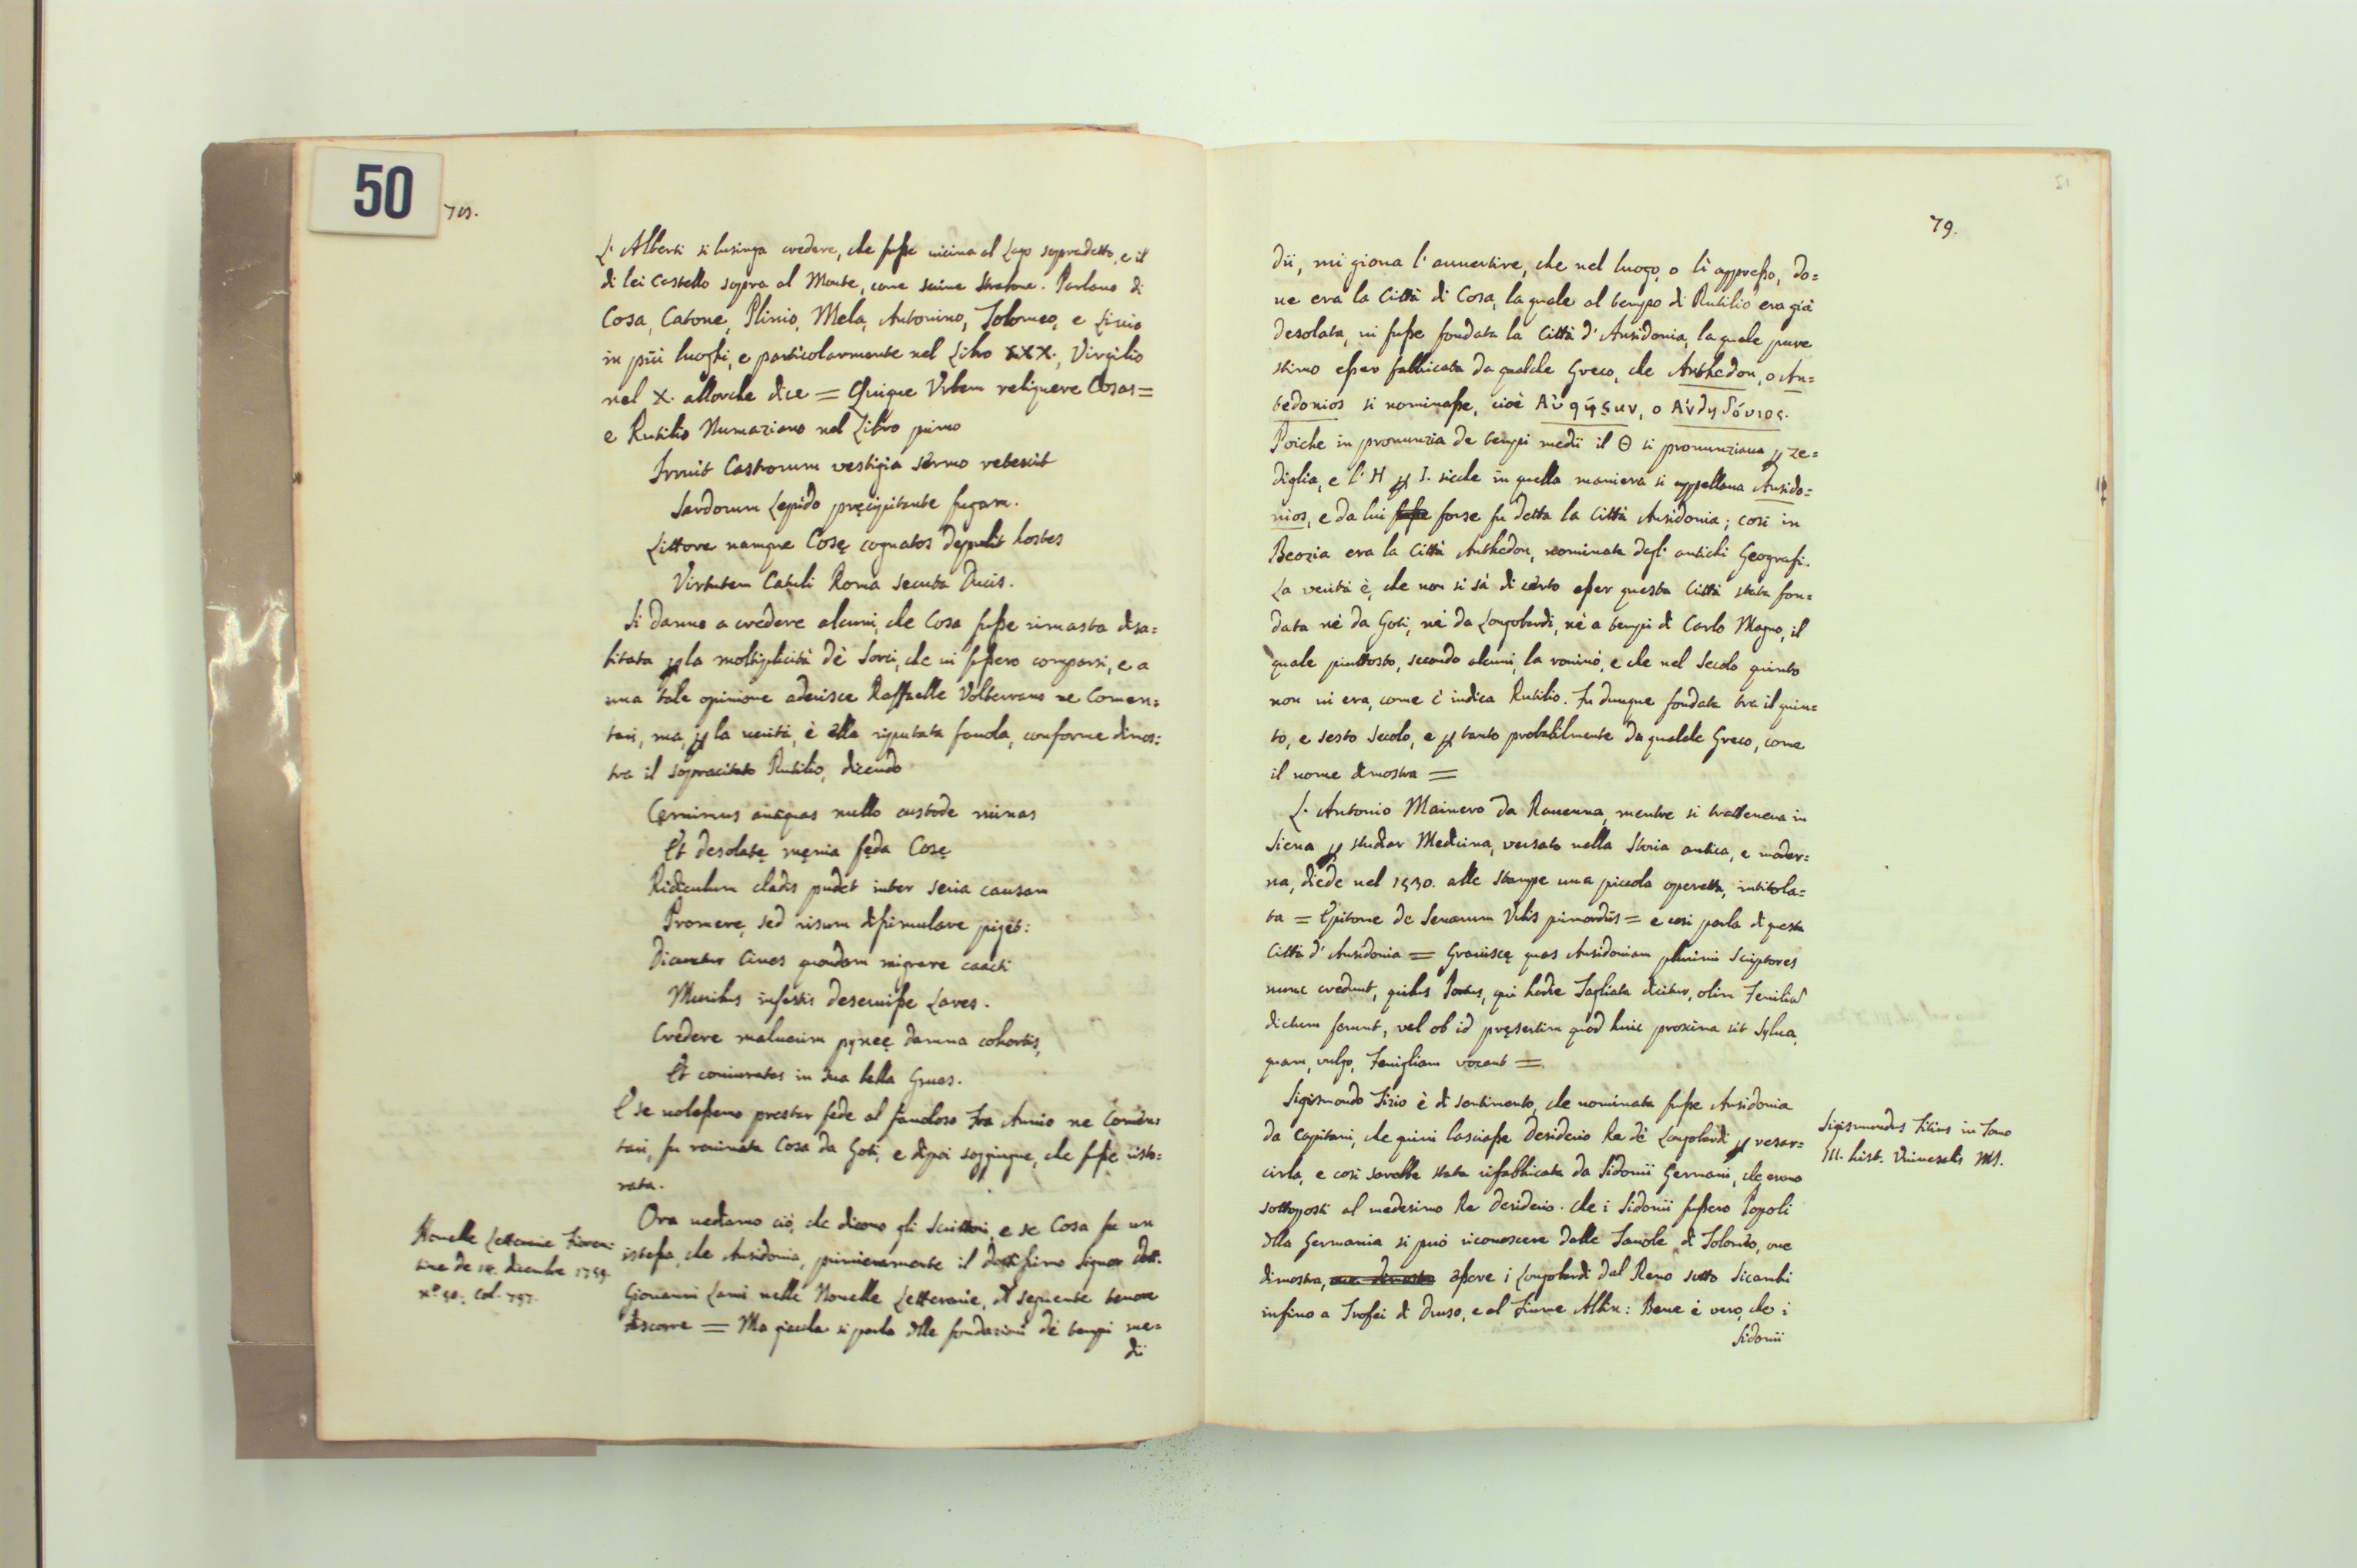 50
78.
L'Alberti si lusinga credere, che fuſse uicina al Lago sopradetto, e il
di lei Castello sopra al Monte, come scriue Strabone. Parlano di
Cosa, Catone, Plinio, Mela, Antonino, Tolomeo, e Liuio
in più luoghi, e particolarmente nel Libro XXX., Virgilio
nel X. allorche dice = Quique Vrbem reliquere Cosas =
e Rutilio Numaziano nel Libro primo
Irruit Castrorum vestigia sermo retexit
Sardorum Lepido pręcipitante fugam.
Littore namque Cosę cognatos deppulit hostes
Virtutem Catuli Roma secuta Ducis.
Si danno a credere alcuni, che Cosa fuſse rimasta disa=
bitata ꝑ la moltiplicità dè Sorci, che ui fuſsero comparsi, e a
una tale opinione aderisce Raffaelle Volterrano ne Comen=
tari, ma, ꝑ la uerità, è ella riputata fauola, conforme dimos=
tra il sopracitato Rutilio, dicendo
Cęrnimus antiquas nullo custode ruinas
Et desolatę męnia fęda Cosę
Ridiculum cladis pudet inter seria causam
Promere, sed risum diſsimulare piget:
Dicuntur Ciues quondam migrare coacti
Muribus infestis deseruiſse Lares.
Credere maluerim pygneę damna cohortis,
Et coniuratas in sua bella Grues.
E se uoleſsemo prestar fede al fauoloso Fra Annio ne Comen=
tari, fu rouinata Cosa da Goti, e dipoi soggiugne, che fuſse risto=
rata.
Ora uediamo ciò, che dicono gli Scrittori, e se Cosa fu un
isteſsa, che Ansidonia, primieramente il dottiſsimo Signor Dott.
Giouanni Lami nelle Nouelle Letterarie, di seguente tenore
discorre = Ma giacche si parla dlle fondazioni dè tempi me=
dii
Nouelle Letterarie Fioren=
tine de 18. dicembre 1759.
n.º 50. Col. 797.
79.
dii, mi gioua l'auuertire, che nel luogo, o lì appreſso, do=
ue era la Città di Cosa, la quale al tempo di Rutilio era già
desolata, ui fuſse fondata la Città d'Ansidonia, la quale pure
stimo eſser fabbricata da qualche Greco, che Anthedon, o An=
tedonios si nominaſse, cioè
Poiche in pronunzia de tempi medii il Θ si pronunziaua ꝑ ze=
diglia, e l'H ꝑ I. sicche in quella maniera si appellaua Ansido=
nios, e da lui fuſse forse fu detta la Città Ansidonia; così in
Beozia era la Città Anthedon, nominata dagl'antichi Geografi.
La uerità è, che non si sà di certo eſser questa Città stata fon=
data nè da Goti, nè da Longobardi, nè a tempi di Carlo Magno, il
quale piuttosto, secondo alcuni, la rouinò, e che nel Secolo quinto
non ui era, come c'indica Rutilio. Fu dunque fondata tra il quin=
to, e sesto Secolo, e ꝑ tanto probabilmente da qualche Greco, come
il nome dimostra =
L'Antonio Mainero da Rauenna, mentre si tratteneua in
Siena ꝑ studiar Medicina, versato nella Storia antica, e moder=
na, diede nel 1530. alle Stampe una piccola operetta, intitola=
ta = Epitome de Senarum Vrbis primordiis = e così parla di questa
Città d'Ansidonia = Grauiscę quas Ansidoniam plurimi Scriptores
nunc credunt, quibus Portus, qui hodie Tagliata dicitur, olim Fenilia
dictum ferunt, vel ob id pręsertim quod huic proxima sit Sylua,
quam, vulgo, Fenigliam vocant =
Sigismondo Tizio è di sentimento, che nominata fuſse Ansidonia
da Capitani, che quiui lasciaſse Desiderio Re dè Longobardi ꝑ resar=
cirla, e così sarebbe stata rifabbricata da Sidonii Germani, che erano
sottoposti al medesimo Re Desiderio. Che i Sidonii fuſsero Popoli
dlla Germania si può riconoscere dalle Tauole di Tolomeo, oue
dimostra, oue dimostra eſsere i Longobardi dal Reno sotto Sicambi
infino a Trofei di Druso, e al Fiume Albin: Bene è vero, che i
Sidonii
Sigismundus Titius in Tomo
III. hist. Vniuersalis MS.